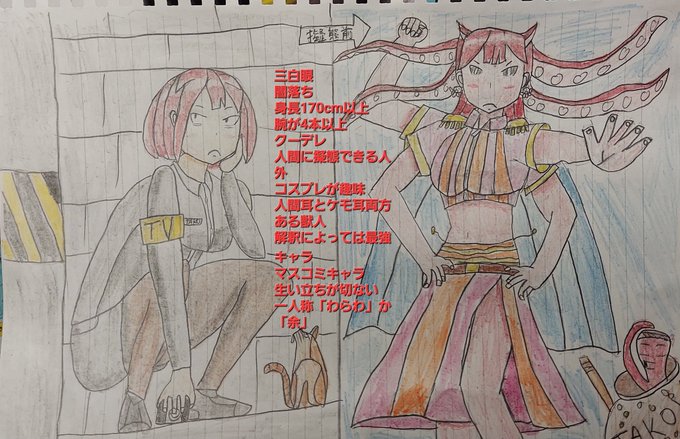 擬態前
三白眼
闇落ち
身長170cm以上
腕が4本以上
グーデレ
人間に擬態できる人
外
コスプレが趣味
人間耳とケモ耳両方
ある獣人
解釈によっては最強
キャラ
マスコミキャラ
生い立ちが切ない
一人称「わらわ」か
「余」
TV
TAKO